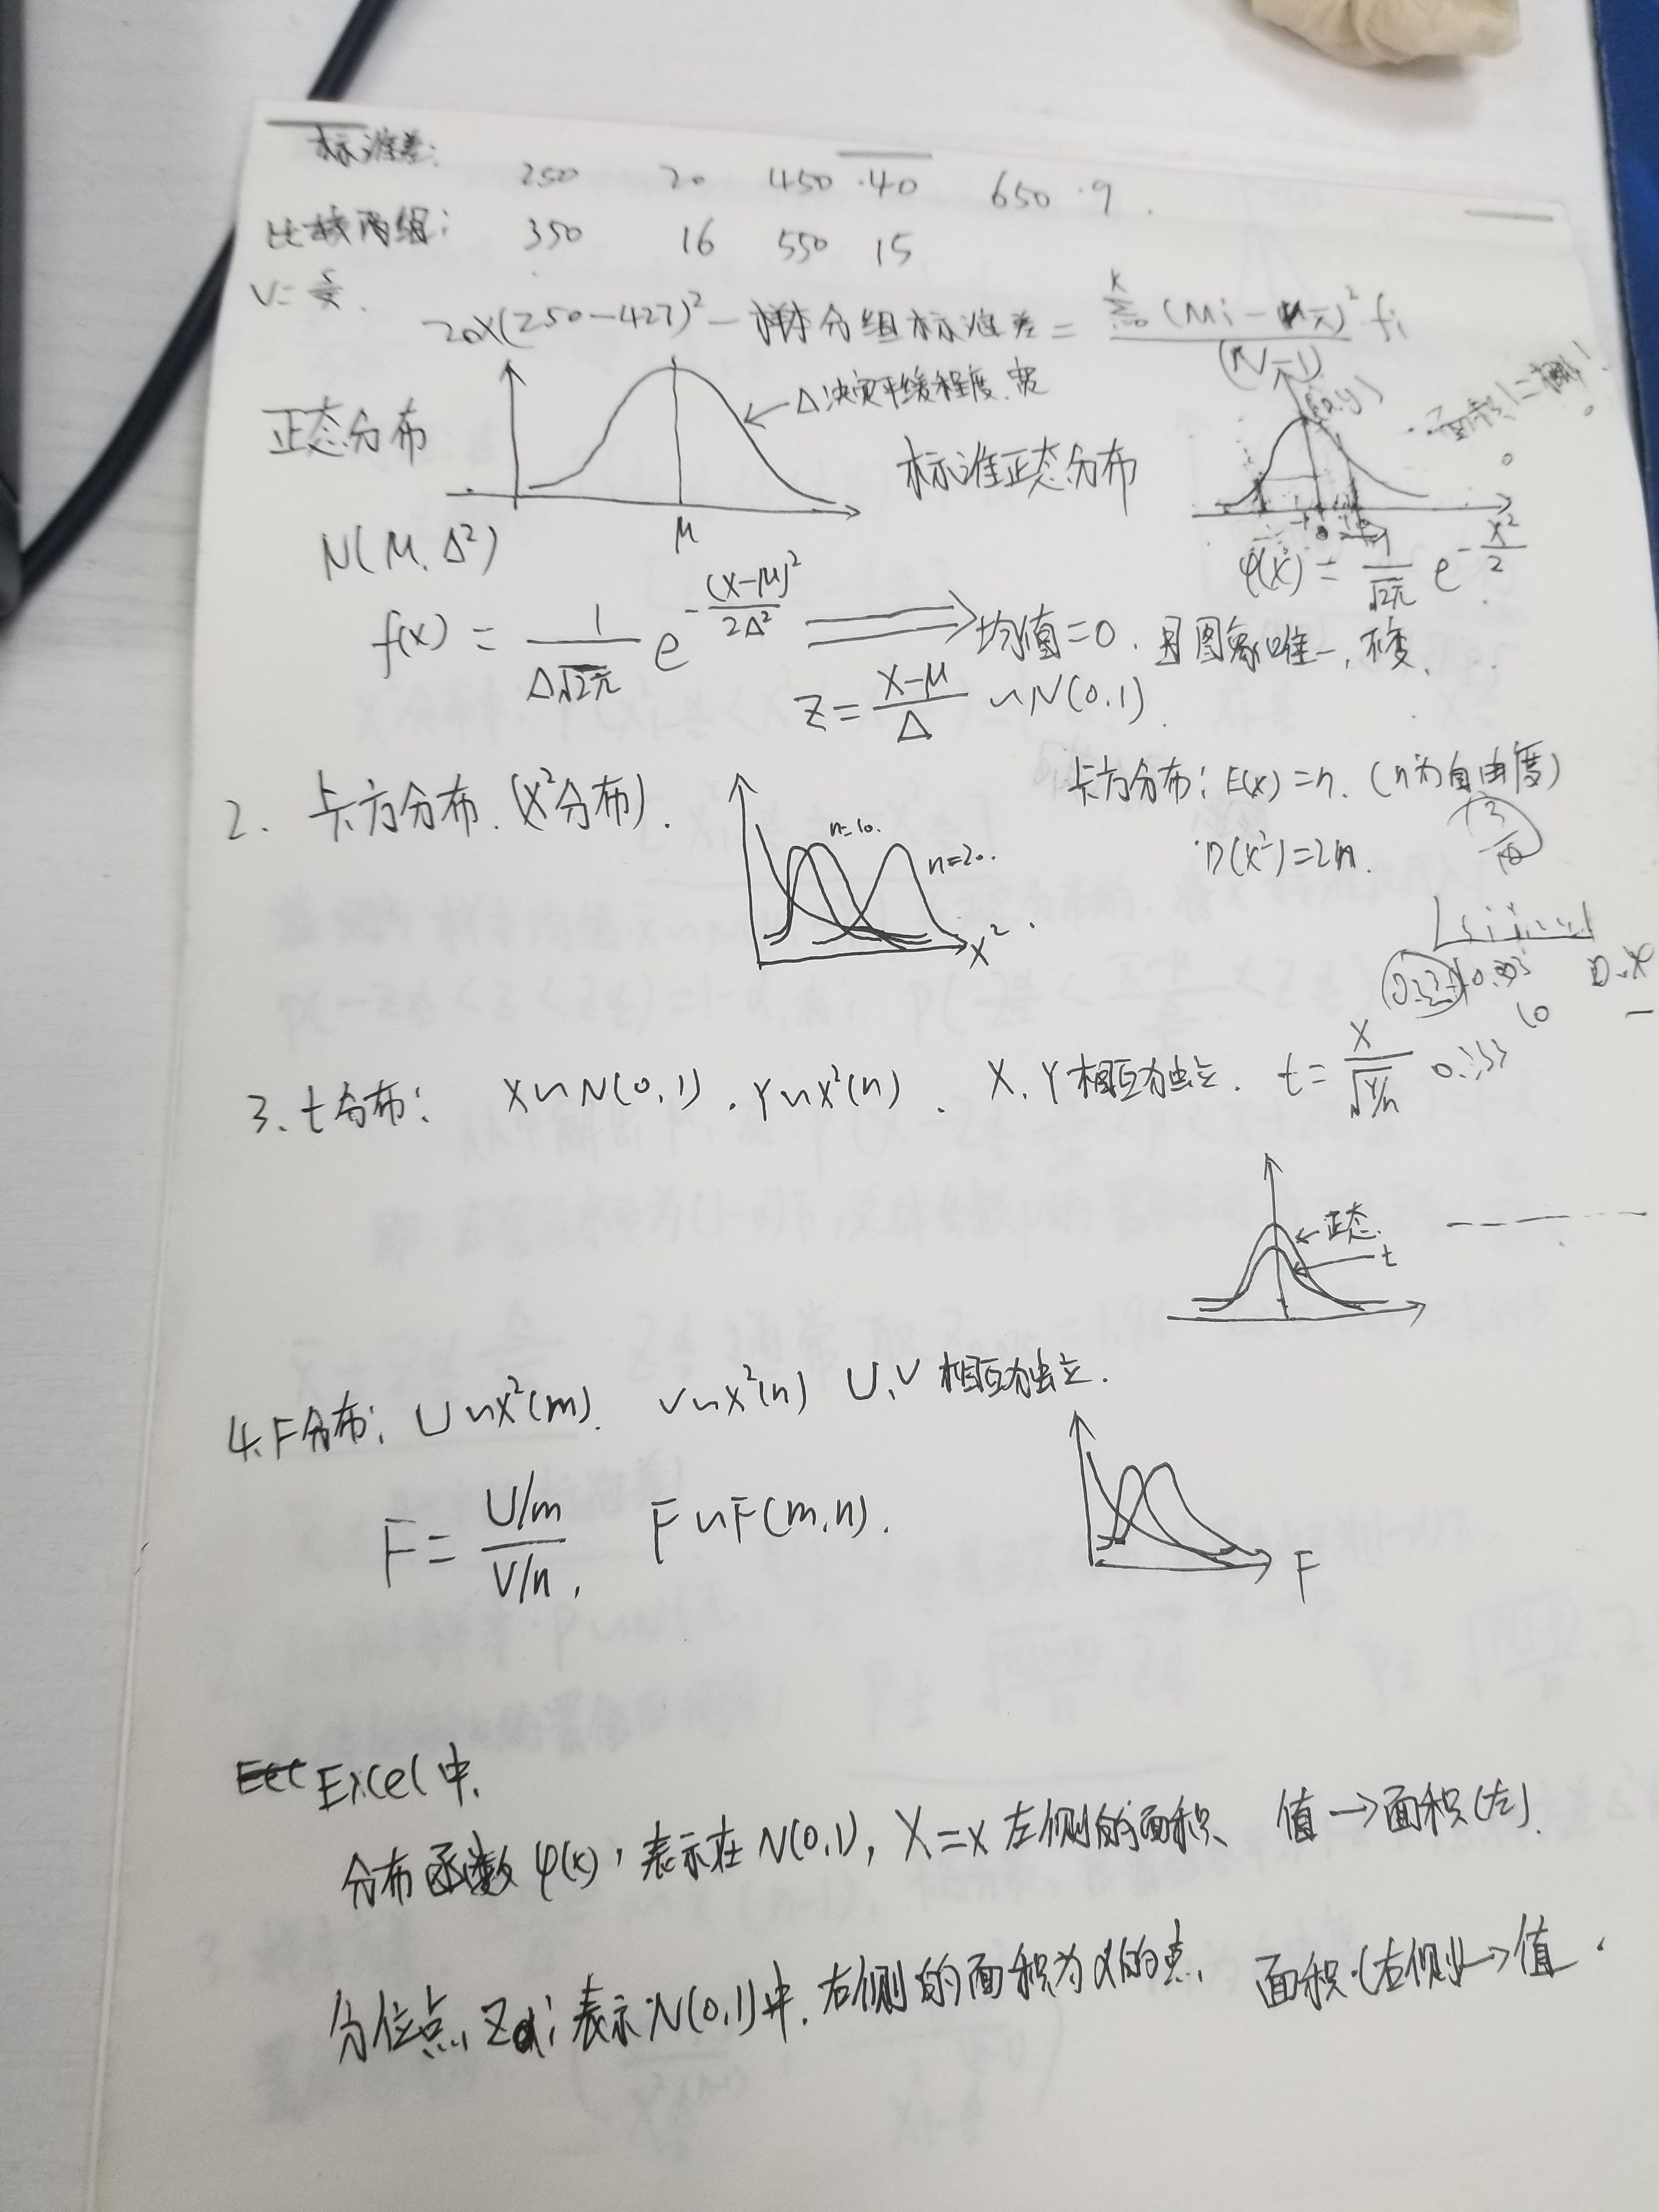 标准差: 250 20 450 ·40 650 ·9.
比较两组: 350 16 550 15
V=
20×(250-427)² - 样本分组标准差 = (Mi - x̄)² fi / (N-1)
正态分布
Δ决定平缓程度、宽
标准正态分布
面积1=概率1
N(μ, Δ²)
μ
φ(x) = 1/√2π e^(-x²/2)
f(x) = 1/(Δ√2π) e^(-(x-μ)²/2Δ²) ⟹ 均值=0. 且图象唯一, 不变.
Z = (X-μ)/Δ ~ N(0,1).
2. 卡方分布. (X²分布).
n=10.
n=20.
X²
卡方分布: E(x)=n. (n为自由度)
D(x²)=2n.
0.333
10
3. t分布: X~N(0,1). Y~X²(n). X, Y相互独立. t= X/√(Y/n)
0.333
正态.
t
4. F分布: U~X²(m). V~X²(n) U, V 相互独立.
F = (U/m)/(V/n), F~F(m,n).
F
Excel中.
分布函数φ(x), 表示在N(0,1), X=x左侧的面积、 值→面积(左).
分位点, Zα; 表示N(0,1)中, 右侧的面积为α的点, 面积(右侧)→值.